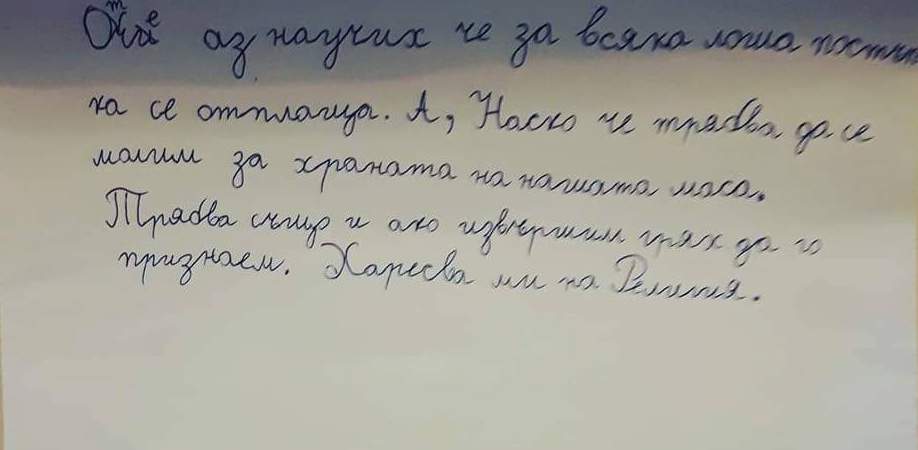 Отче аз научих че за всяка лоша постъп
ка се отплаща. А, Наско че трябва да се
молим за храната на нашата маса.
Трябва също и ако извършим грях да го
признаем. Харесва ми на Религия.